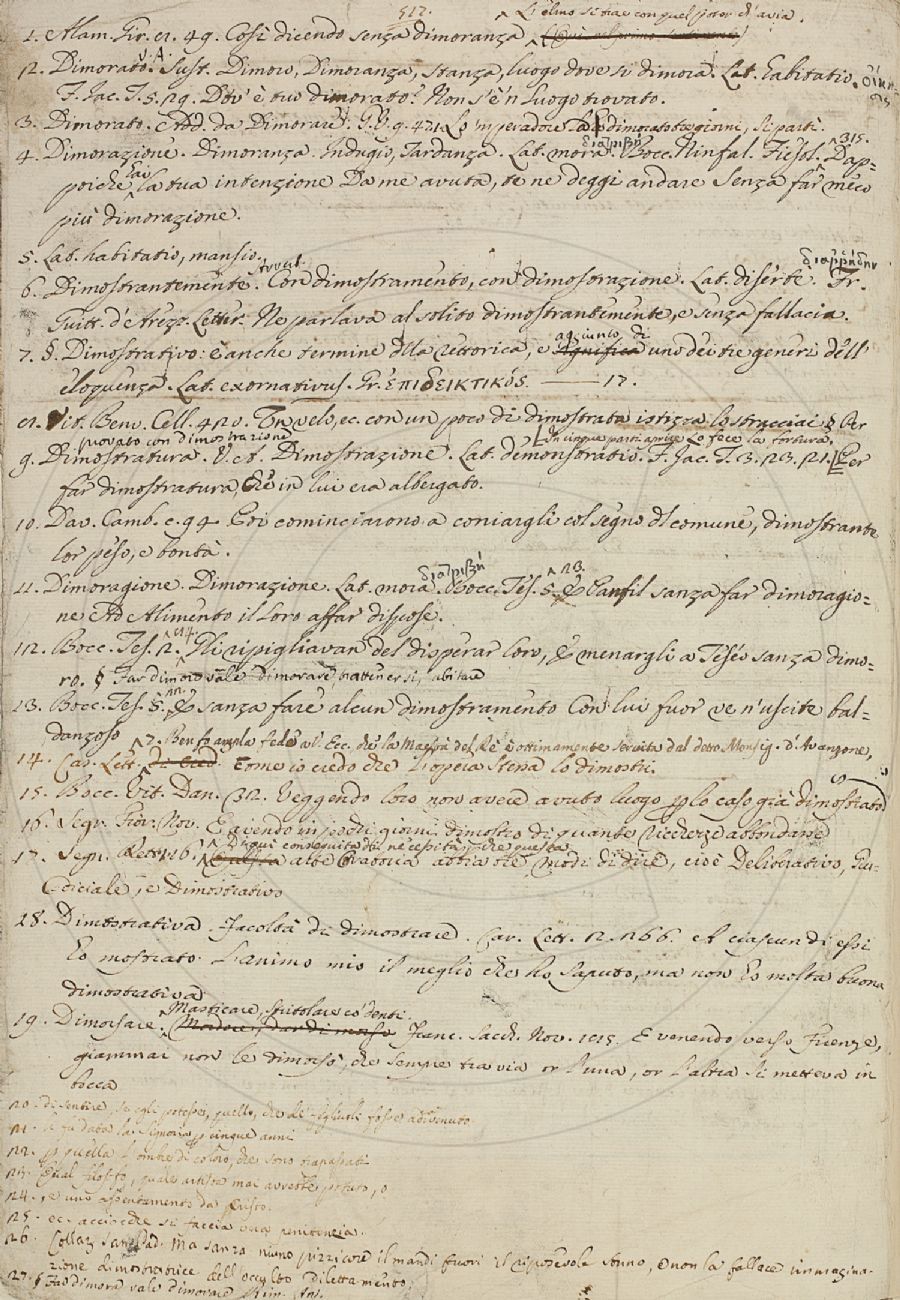 512.
L'elmo si trae con quel poter ch'avia.
1. Alam. Gir. 21. 49. Così dicendo senza dimoranza
2. Dimorato. V.A. Sust. Dimoro, Dimoranza, stanza, luogo dove si dimora. Lat. habitatio.
F. Jac. T. 5. 29. Dov' è tuo dimorato? Non s'è 'n luogo trovato.
3. Dimorato. Add. da Dimorare. G. V. 9. Lo 'mperadore dimorato tre giorni, si partì.
4. Dimorazione. Dimoranza, Indugio, Tardanza. Lat. mora. διατριβή. Bocc. Ninfal. Fiesol. 315. Dap-
poichè hai la tua intenzione Da me avuta, te ne deggi andare Senza far meco
più dimorazione.
5. Lat. habitatio, mansio.
6. Dimostrantemente. Avverb. Con dimostramento, con dimostrazione. Lat. disertè. διαῤῥήδην Fr.
Guitt. d'Arezo. Letter. Ne parlava al solito dimostrantemente, e senza fallacia.
7. §. Dimostrativo: è anche termine della rettorica, e aggiunto di uno dei tre generi dell'
eloquenza. Lat. exornativus. Gr. ἐπιδεικτικός. —— 17.
Vit. Benv. Cell. 420. Tre volte, ec. con un poco di dimostrata istizza lo stracciai § Per
provato con dimostrazione In cinque parti aprire lo fece la tortura.
9. Dimostratura. V. A. Dimostrazione. Lat. demonstratio. F. Jac. T. 3. 23. 21. Per
far dimostratura, Ch'è in lui era albergato.
10. Dav. Camb. c. 94 Poi cominciarono a coniargli col segno del comune, dimostrante
lor peso, e bontà.
11. Dimoragione. Dimorazione. Lat. mora. διατριβή Bocc. Tes. 5. 23. E Panfil sanza far dimoragio=
ne Ad Alimento il loro affar dispose.
12. Bocc. Tes. 2. Gli ripigliavan del disperar loro, E menargli a Teséo sanza dimo-
ro. § Far dimoro vale dimorare, trattenersi, abitare
13. Bocc. Tes. 5. E sanza fare alcun dimostramento Con lui fuor ve n'uscite bal-
danzoso
7. Ben fa ampla fede a V. Ecc. che la Maestà del Rè è ottimamente servita dal detto Monsig. d'Avanzone,
14. Cas. Lett. Come io credo che l'opera stessa lo dimostri.
15. Bocc. Vit. Dan. 32. Veggendo loro non avere avuto luogo per lo caso già dimostrato
16. Segr. Fior. Nov. E avendo in pochi giorni dimostro di quante ricchezze abbondasse
Di qui conseguita di necessità, che questa
17. Segn. Rett. 16. arte Oratoria abbia tre modi di dire, cioè Deliberativo, Giu-
diciale, e Dimostrativo
18. Dimostrativa. Facoltà di dimostrare. Car. Lett. 2. 266. A ciascun di essi
ho mostrato l'animo mio il meglio che ho saputo, ma non ho molta buona
dimostrativa
Masticare, Stritolare co' denti.
19. Dimorsare. Franc. Sacch. Nov. E venendo verso Firenze,
giammai non le dimorsò, che sempre tra via or l'una, or l'altra si metteva in
bocca
20. di sentire, se egli potesse, quello, che de' figliuoli fosse addivenuto
21. le fu data la Signoria p cinque anni
22. p quella l'ombre di coloro, che sono trapassati
23. Qual filosofo, quale artista mai avrebbe potuto, o
24. , e uno da Cristo.
25. ec. acciocchè si faccia una penitenzia.
26. Collaz. San. Pad. Ma sanza niuno pizzicore il mandi fuori il ripresevole sonno, e non la fallace immagina-
zione dimostratrice dell'occulto dilettamento;
27. § Far dimora vale dimorare